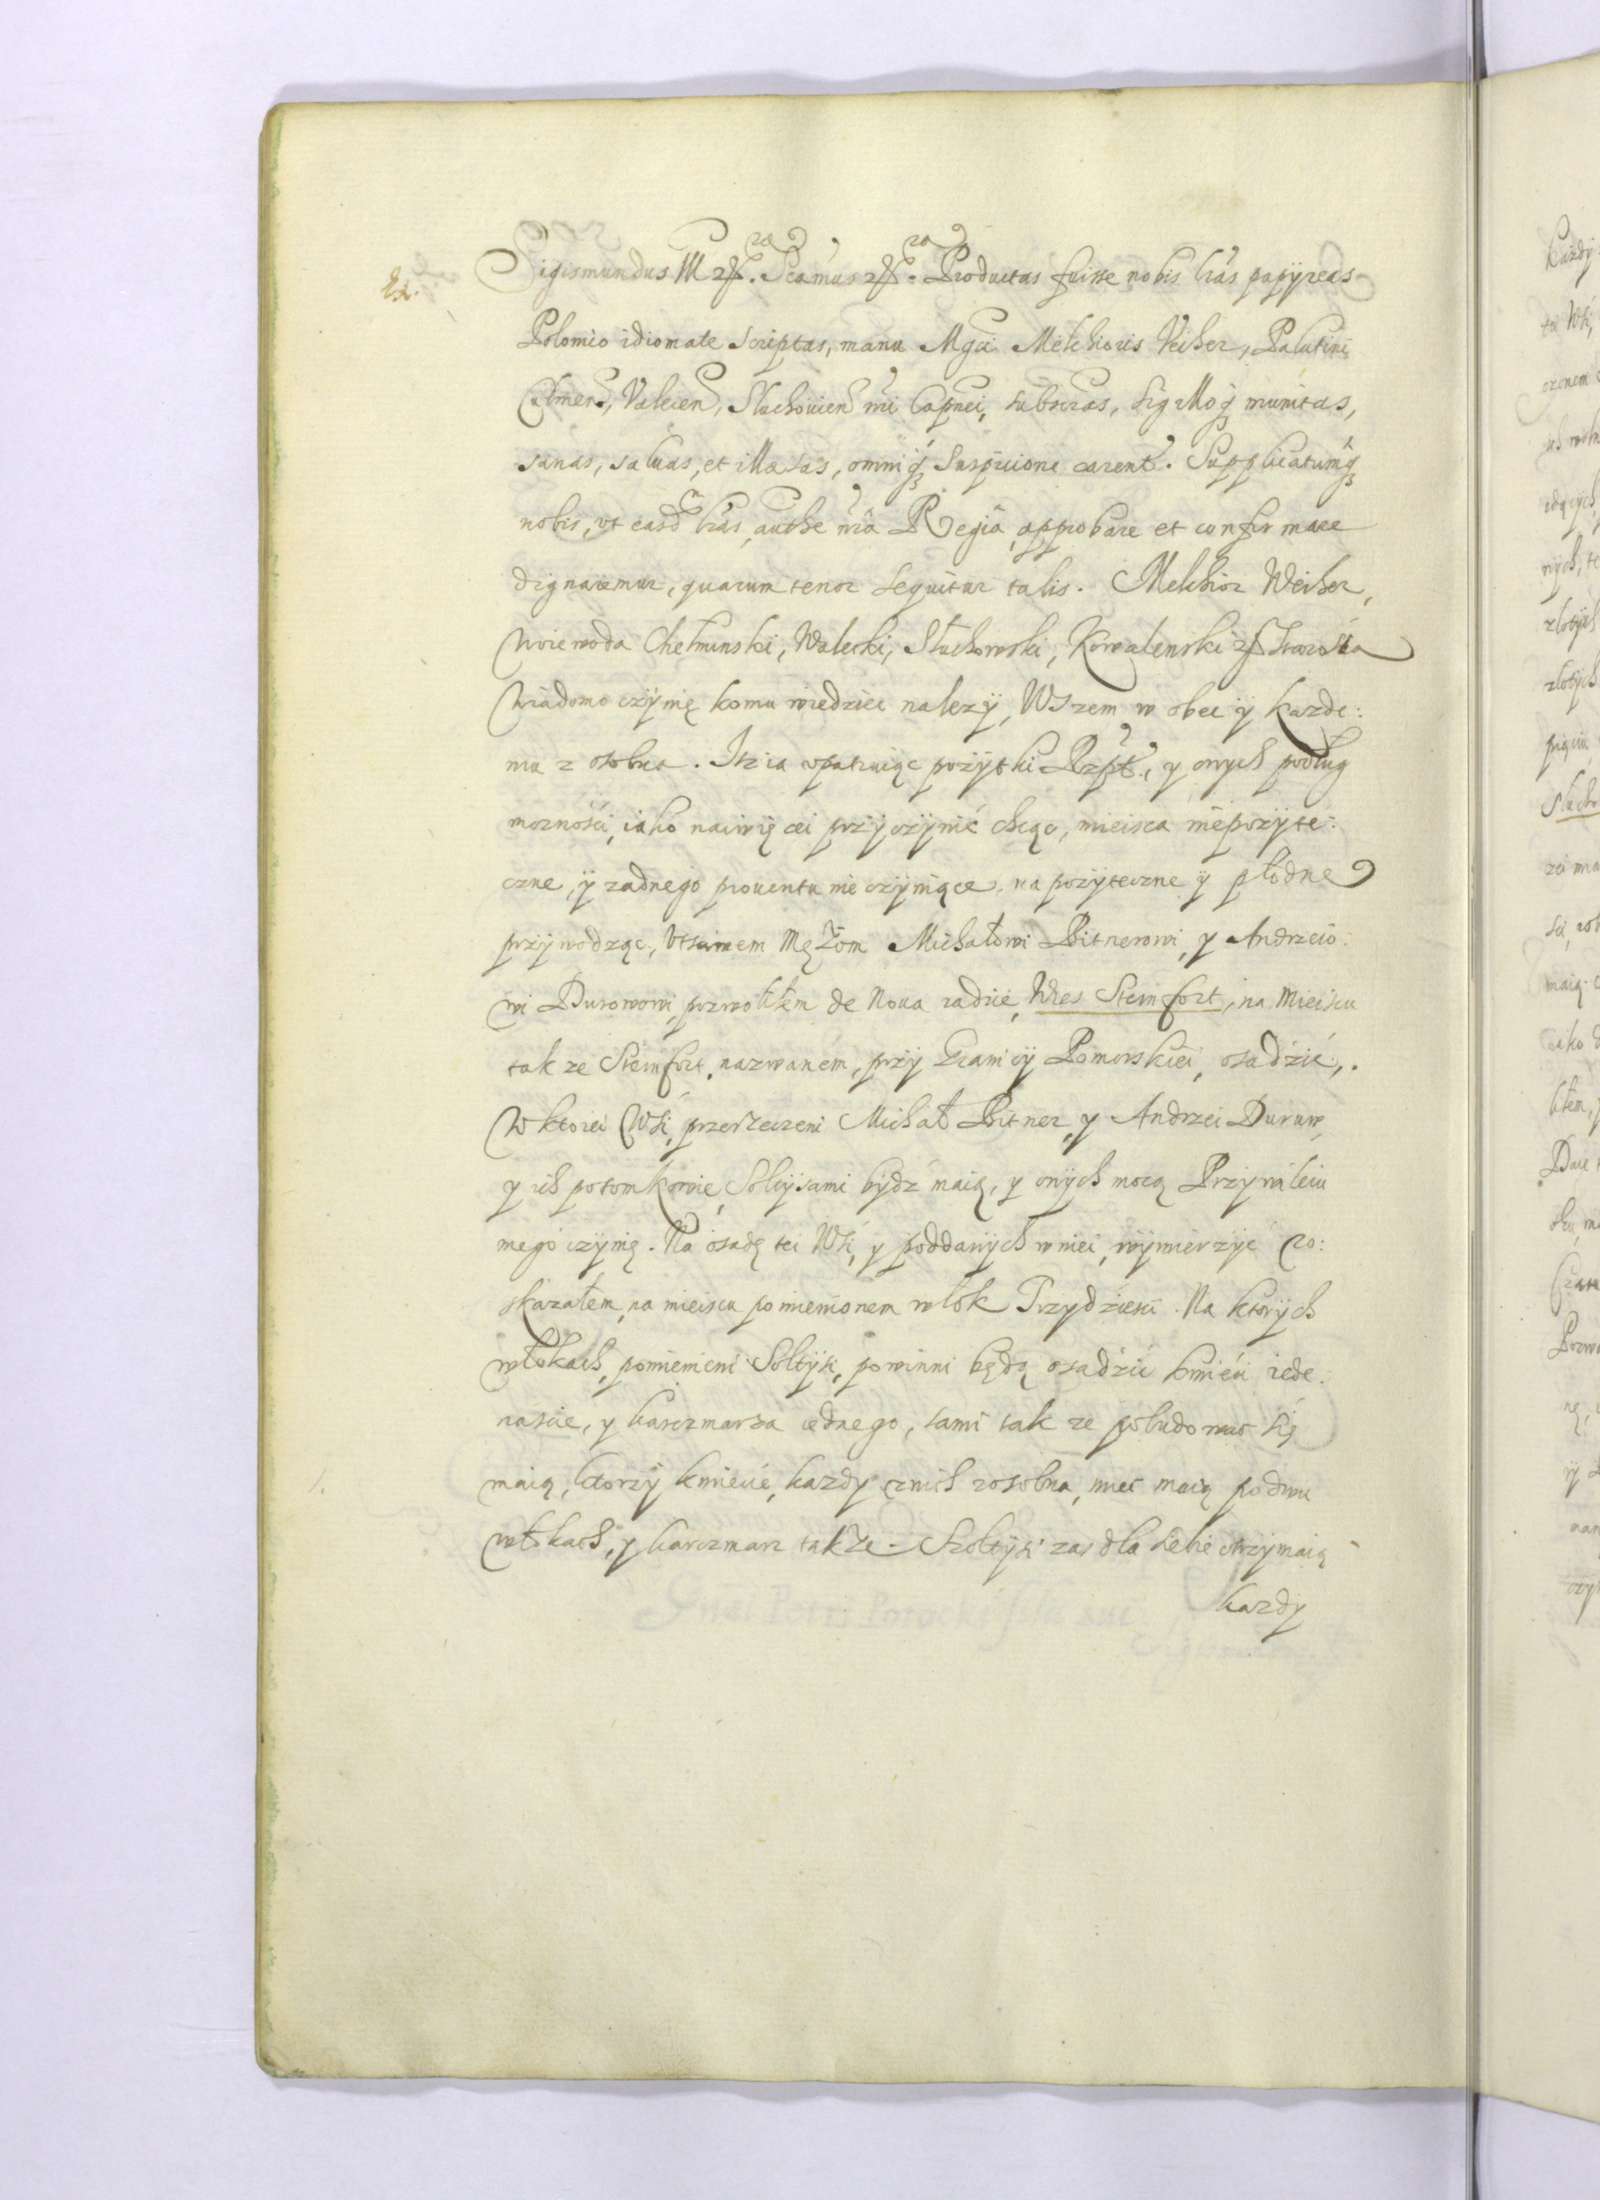 Sigismundus III etc. Scamus etc. Productas fuisse nobis lras papyreas
Polonico idiomate scriptas, manu Mgci Melchioris Veiher, Palatini
Culmen, Valcen, Sluchouien nri Capnei, subscras, sigilloq munitas,
sanas, saluas, et illaesas, omniq suspicione carent. Supplicatumq
nobis, vt easd lras, authe nra Regia, approbare et confirmare
dignaremur, quarum tenor sequitur talis. Melchior Weiher,
Woiewoda Chełminski, Walecki, Słuchowski, Kowalewski etc Starosta
Wiadomo czÿnię komu wiedziec nalezÿ, Wszem w obec ÿ kazde:
mu z osobna. Isz ia vpatruiąc pozÿtki Rzpt, y onych podług
moznosci, iako naiwięcei przÿczÿnić chcąc, mieisca niepozÿte:
czne, ÿ zadnego prouentu nie czÿniące, na pozÿteczne ÿ płodne
przÿwodząc, Vtsciwem Męzom Michałowi Bitnerowi, y Andrzeio:
wi Durowowi, pozwoliłem de Noua radice, Wies Steinfort, na Mieiscu
takze Steinfort, nazwanem, przÿ Granicÿ Pomorskiei, osadzić,.
W ktorei Wsi, przerzeczeni Michał Bitner, y Andrzei Durow,
y ich potomkowie, Soltÿsami bÿdź maią, y onÿch mocą Przÿwileiu
mego czÿnię. Na osadę tei Wsi, y poddanÿch w niei, wÿmierzÿć ro:
skazałem, na mieiscu pomienionem włok Trzydziesci. Na ktorÿch
włokach, pomienieni Soltÿsi, powinni będą osadzić kmieci iede:
nascie, y karczmarza iednego, sami takze pobudowac się
maią, ktorzÿ kmiecie, kazdy z nich zosobna, miec maią po dwu
włokach, y karczmarz takze. Szoltÿsi zas dla siebie otrzymaią
kazdy